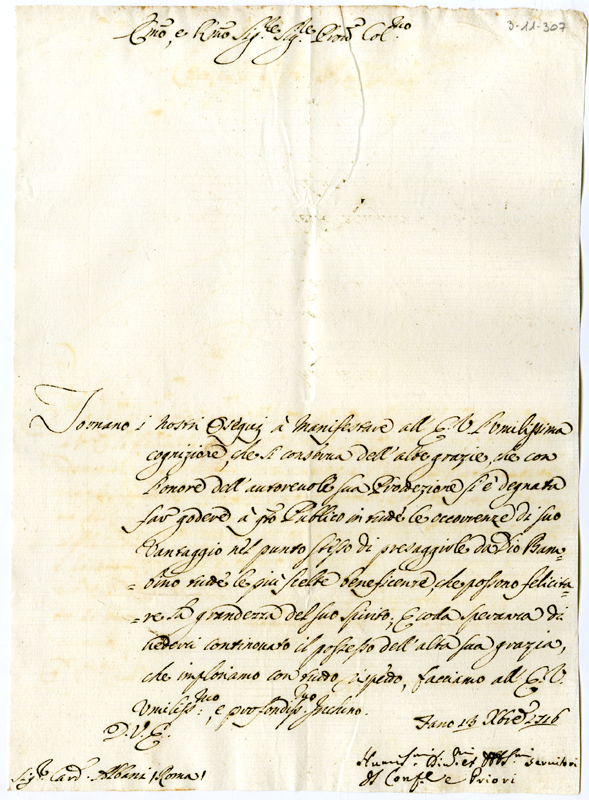 3-11-307
Emõ, e Rmõ Sig.re Sig.re Prõn Col.mo
Tornano i nostri Ossequj à manifestare all'E.V. l'umilissima
cognizione, che si conserva dell'alte grazie, che con
l'onore dell'autorevole sua Protezione si è degnata
far godere à q̃sto Publico in tutte le occorrenze di suo
Vantaggio nel punto stesso di presaggirle da Dio Bam=
=bino tutte le più scelte beneficenze, che possono felicita=
=re la grandezza del suo spirito; E colla speranza di
vederci continouato il possesso dell'alta sua grazia,
che imploriamo con tutto rispetto, facciamo all'E.V.
Umiliss.mo, e profondiss.mo Inchino.
Fano 13 Xbre 1716
D.V.E.
Sig.r Card. Albani (Roma)
Servitori
Il Conf.re e Priori